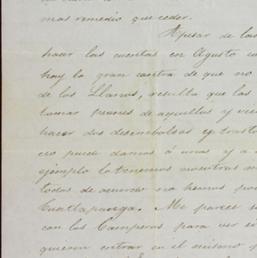 mas remedio que ceder.
Apesar de las
hacer las cuentas en Agosto
hoy la gran contra de que no
de los Llanos, resulta que las
tomar peones de aquellos y
hacer dos desembolsos
puede darnos á unas y a
ejemplo lo tenemos nosotros
todos de acuerdo no hemos
Cuatlapanga. Me parece
con las Camperos para ver si
quieren entrar en el mismo